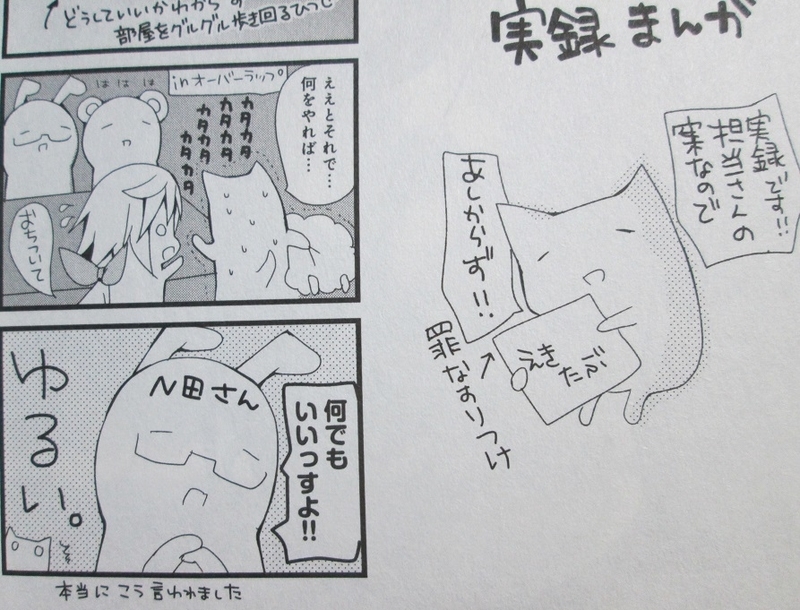 実録まんが
実録です!!
担当さんの
案なので
あしからず!!
えき
たぶ
罪なすりつけ
どうしていいかわからず
部屋をグルグル歩き回るひつじ
ええとそれで…
何をやれば…
inオーバーラップ。
カタカタ
カタカタ
カタカタ
カタカタ
ははは
おちついて
何でも
いいっすよ!!
N田さん
ゆるい。
本当にこう言われました